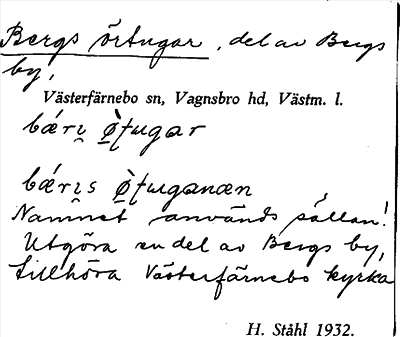 Bergs örtugar, del av Bergs
by,
Västerfärnebo sn, Vagnsbro hd, Västm. l.
bǽrı̯ ø̀ʈugar
bǽrı̯s ø̀ʈuganæn
Namnet används sällan!
Utgöra en del av Bergs by,
tillhöra Västerfärnebo kyrka
H. Ståhl 1932.